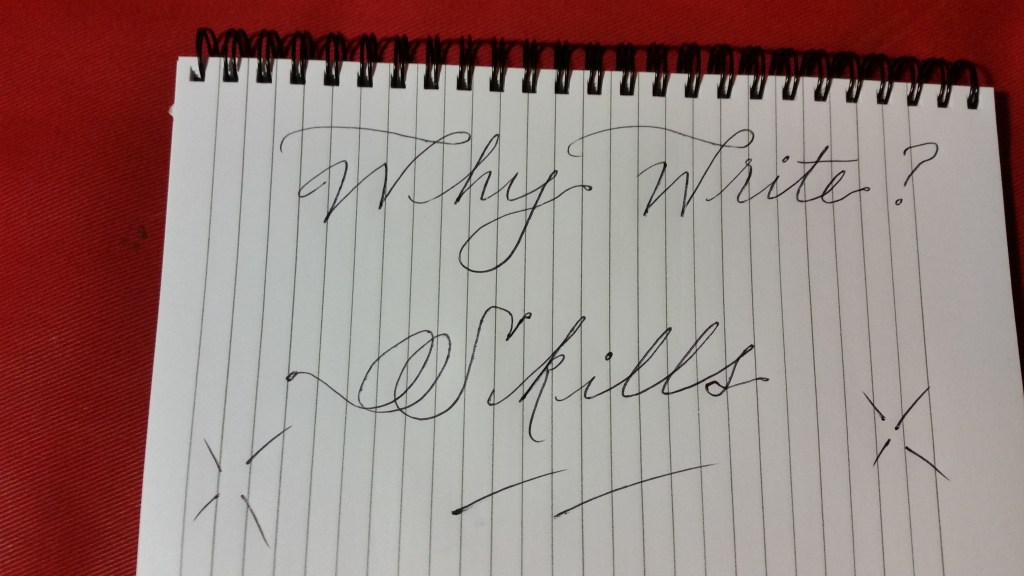 Why Write?
Skills